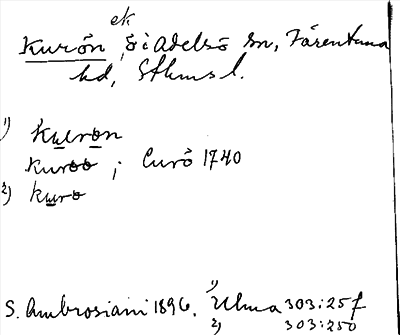 ek
Kurön, Ö i Adelsö sn, Färentuna
hd, Sthms l.
1) Kuron
kuroo ; Curö 1740
2) kuro
S. Ambrosiani 1896. 1) Ulma 303:25 f
2) 303:25 o